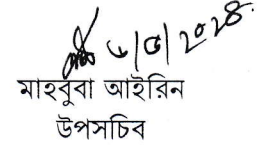 ৬/৫/২০২৪
মাহবুবা আইরিন
উপসচিব